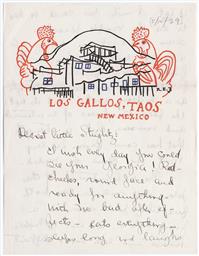 5/2/29
R.E.J
LOS GALLOS, TAOS
NEW MEXICO
Dearest little Stieglitz:
I wish every day you could
see your Georgia! Red
cheeks, round face and
ready for anything
with no bad after ef-
fects – eats everything –
sleeps long and laughs